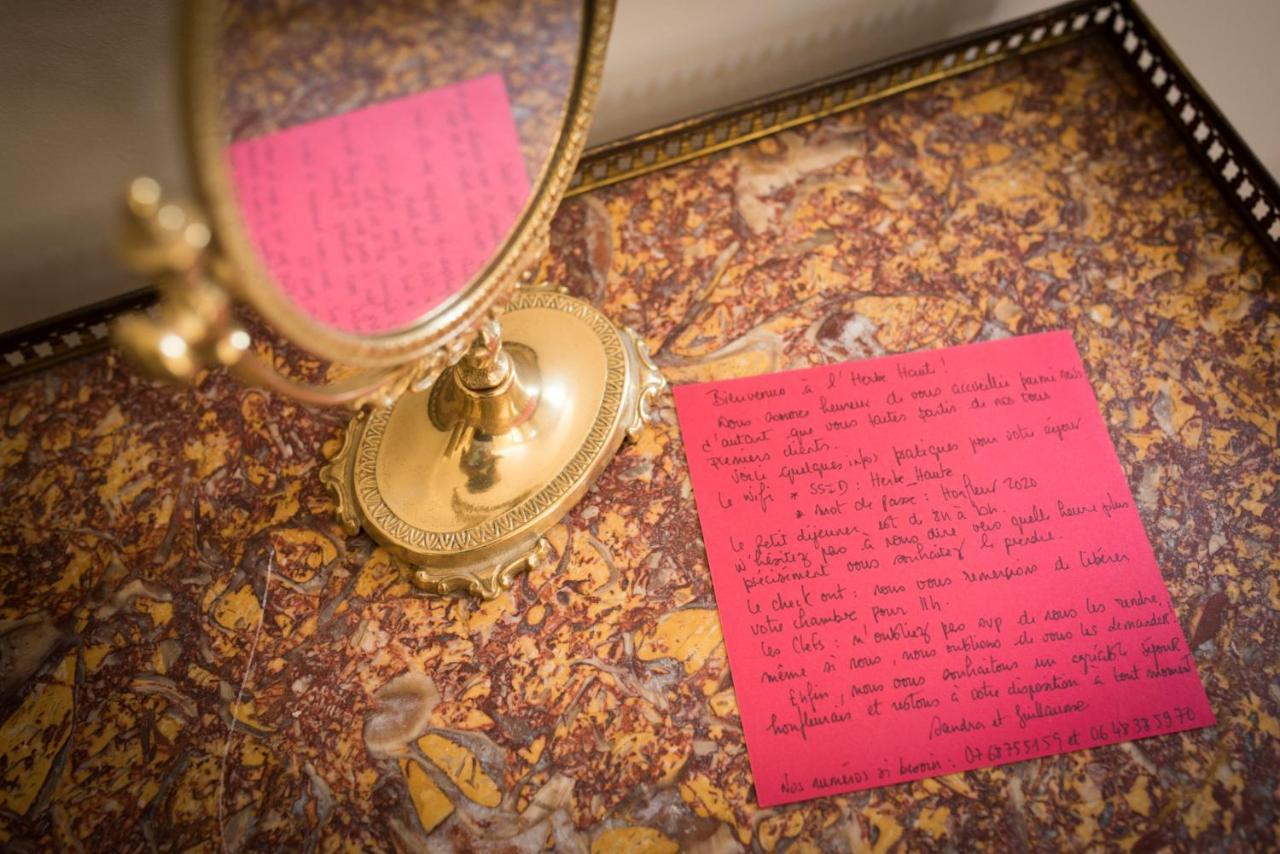 Bienvenus à l'Herbe Haute !
Nous sommes heureux de vous accueillir parmi nous
d'autant que vous faites partis de nos tous
premiers clients.
Voici quelques infos pratiques pour votre séjour
Le wifi * SSID : Herbe_Haute
* Mot de passe : Honfleur 2020
Le petit déjeuner est d 8h à 10h.
N'hésitez pas à nous dire vers quelle heure plus
précisément vous souhaitez le prendre.
Le check out : nous vous remercions de libérer
votre chambre pour 11h.
Les Clefs : n'oubliez pas svp de nous les rendre,
même si nous, nous oublions de vous les demander.
Enfin, nous vous souhaitons un agréable séjour
honfleurais et restons à votre disposition à tout moment
Sandra et Guillaume
Nos numéros si besoin : 0768755159 et 06 48 38 59 70